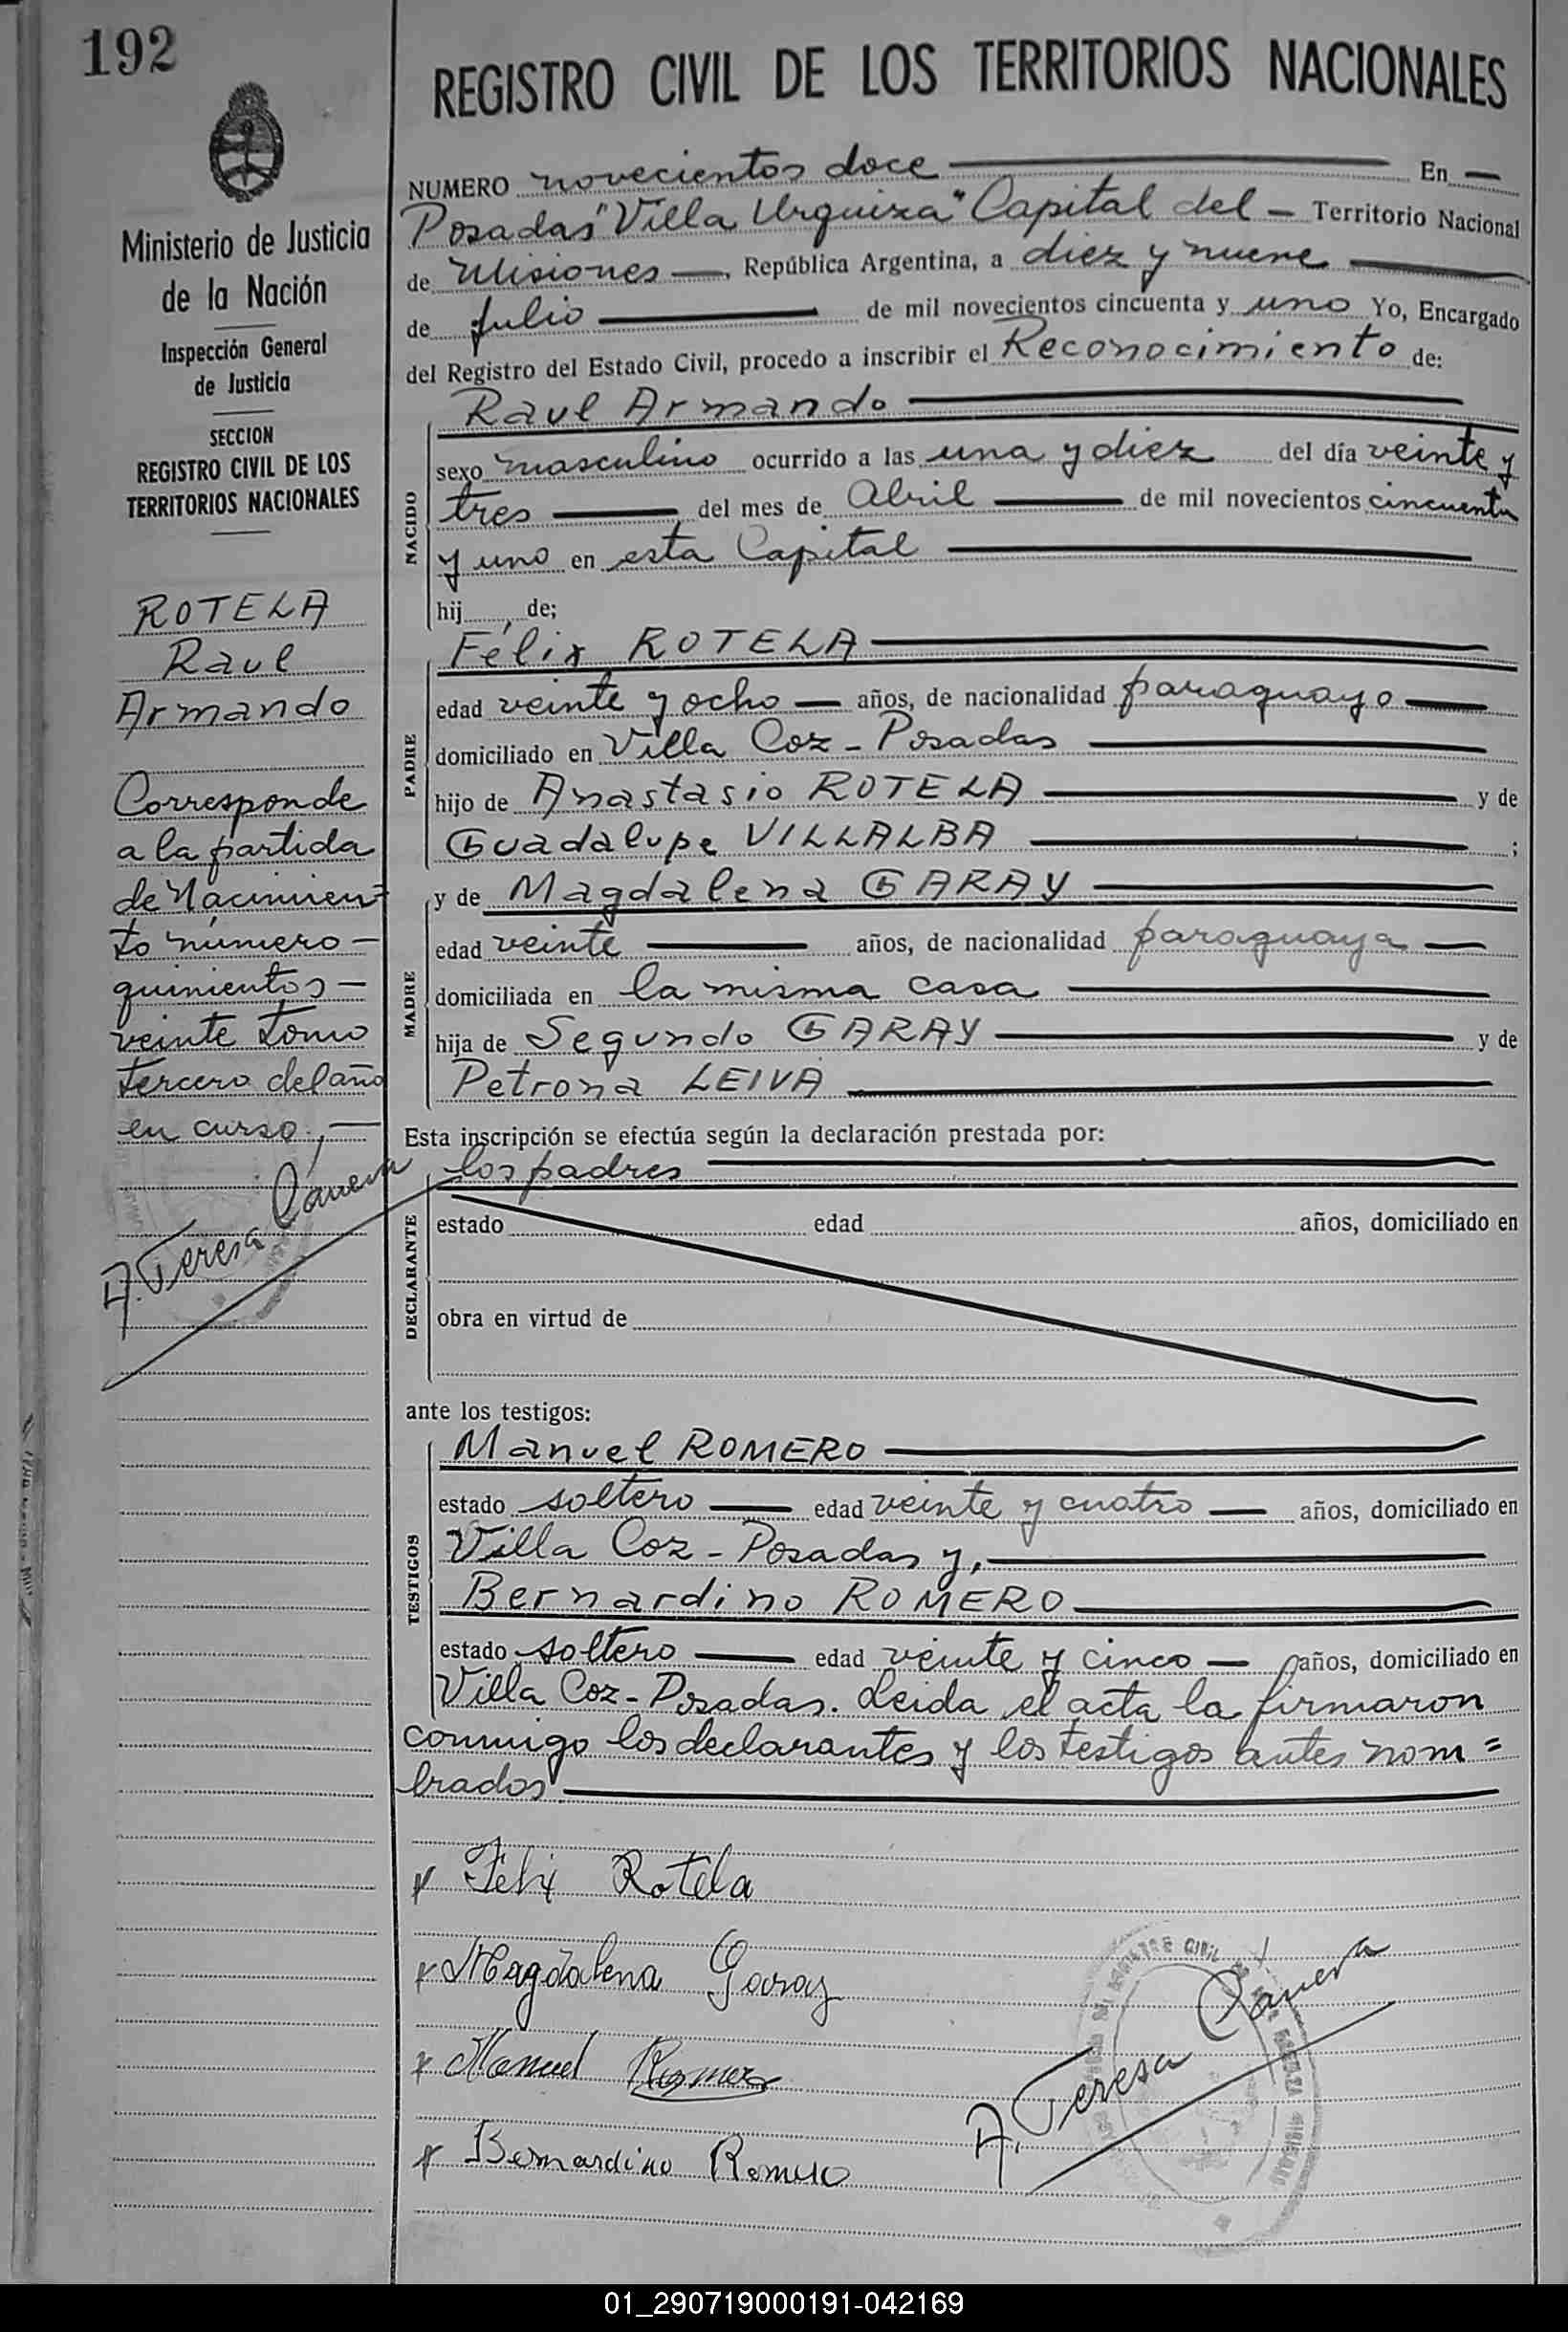 192
REGISTRO CIVIL DE LOS TERRITORIOS NACIONALES
Ministerio de Justicia
de la Nación
Inspección General
de Justicia
SECCION
REGISTRO CIVIL DE LOS
TERRITORIOS NACIONALES
ROTELA
Raul
Armando
Corresponde
a la partida
de Nacimien=
to número—
quinientos—
veinte tomo
tercero del año
en curso.,—
A. Teresa
NUMERO novecientos doce — En —
Posadas "Villa Urquiza" Capital del — Territorio Nacional
de Misiones —, República Argentina, a diez y nueve —
de julio — de mil novecientos cincuenta y uno Yo, Encargado
del Registro del Estado Civil, procedo a inscribir el Reconocimiento de:
Raul Armando —
NACIDO
sexo masculino ocurrido a las una y diez del día veinte y
tres — del mes de Abril — de mil novecientos cincuenta
y uno en esta Capital —
hij , de;
Félix ROTELA —
PADRE
edad veinte y ocho — años, de nacionalidad paraguayo —
domiciliado en Villa Coz - Posadas —
hijo de Anastasio ROTELA — y de
Guadalupe VILLALBA — ;
y de Magdalena GARAY —
MADRE
edad veinte — años, de nacionalidad paraguaya —
domiciliada en la misma casa —
hija de Segundo GARAY — y de
Petrona LEIVA —
Esta inscripción se efectúa según la declaración prestada por:
los padres —
DECLARANTE
estado edad años, domiciliado en
obra en virtud de
ante los testigos:
Manuel ROMERO —
TESTIGOS
estado soltero — edad veinte y cuatro — años, domiciliado en
Villa Coz - Posadas y, —
Bernardino ROMERO —
estado soltero — edad veinte y cinco — años, domiciliado en
Villa Coz - Posadas. Leida el acta la firmaron
conmigo los declarantes y los testigos antes nom=
brados —
Felix Rotela
Magdalena Garay
Manuel Romero
Bernardino Romero
A. Teresa
01_290719000191-042169